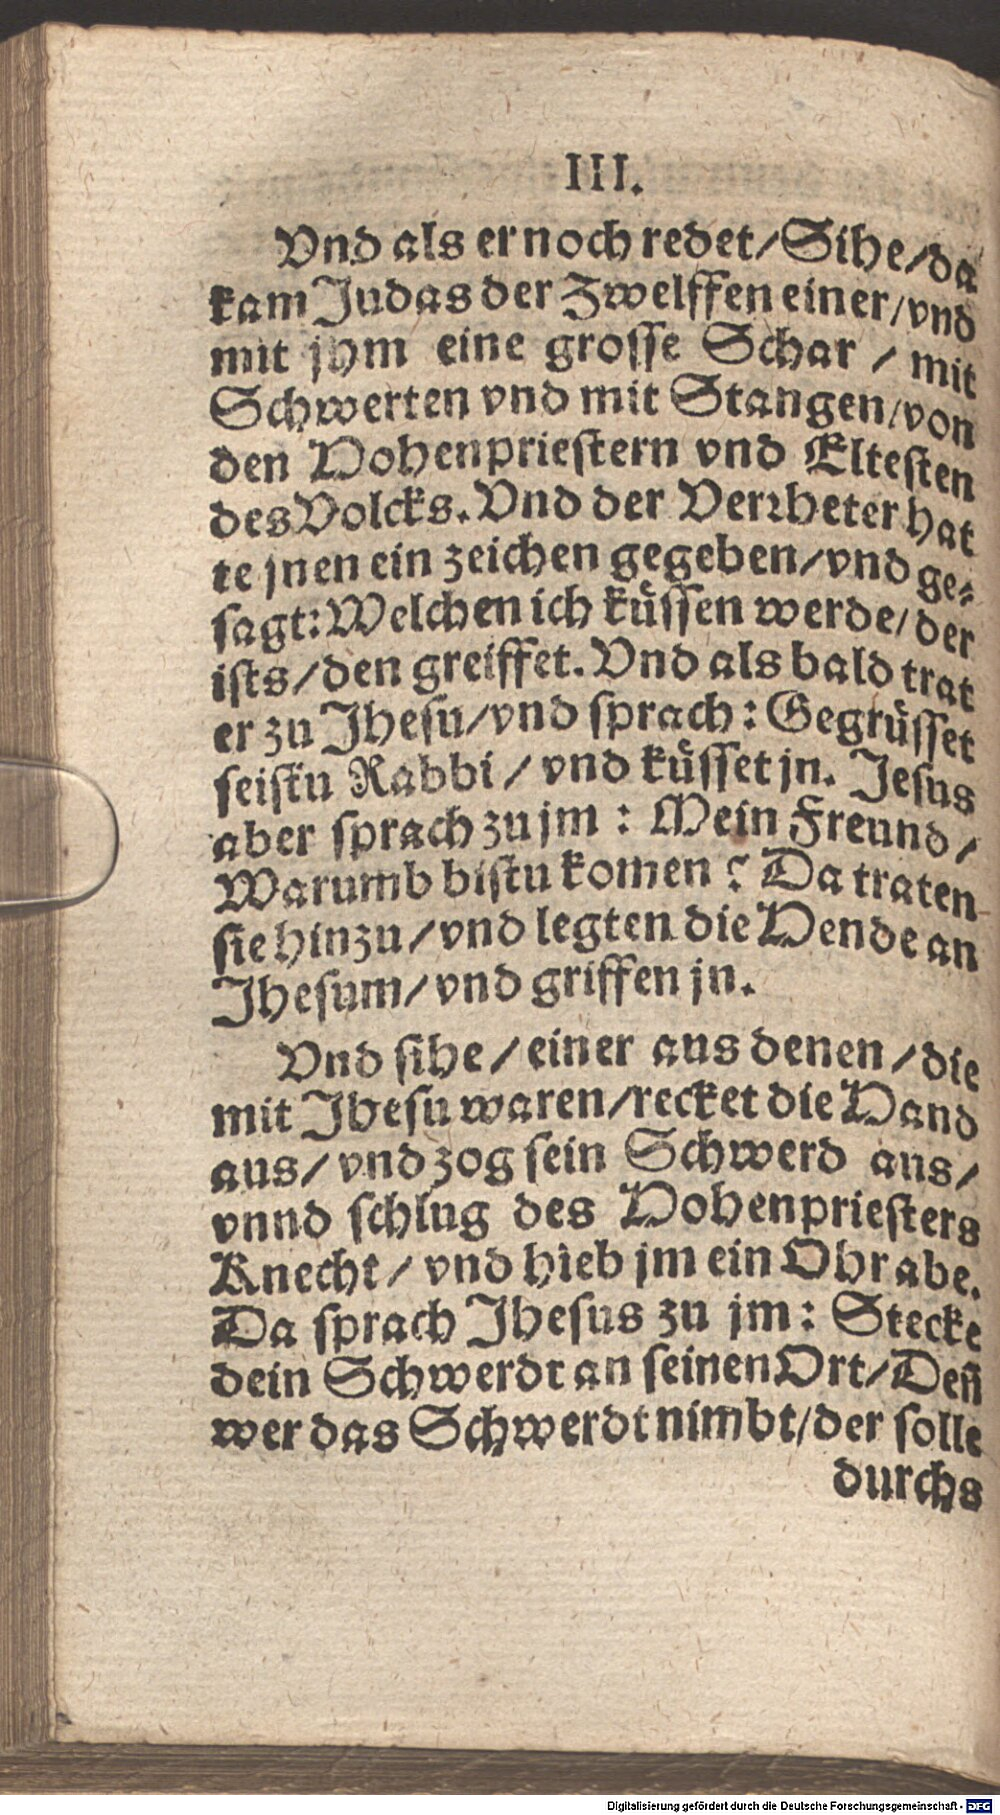 III.
Vnd als er noch redet/Sihe/da
kam Judas der Zwelffen einer/vnd
mit jhm eine grosse Schar / mit
Schwerten vnd mit Stangen/von
den Hohenpriestern vnd Eltesten
des Volcks. Vnd der Verrheter hat
te jnen ein zeichen gegeben/vnd ge⸗
sagt: Welchen ich küssen werde/der
ists/den greiffet. Vnd als bald trat
er zu Jhesu/vnd sprach: Gegrüsset
seistu Rabbi / vnd küsset jn. Jesus
aber sprach zu jm : Mein Freund /
Warumb bistu komen ? Da traten
sie hinzu/vnd legten die Hende an
Jhesum/vnd griffen jn.
Vnd sihe/einer aus denen/die
mit Jhesu waren/recket die Hand
aus/vnd zog sein Schwerd aus/
vnnd schlug des Hohenpriesters
Knecht/vnd hieb jm ein Ohr abe.
Da sprach Jhesus zu jm: Stecke
dein Schwerdt an seinen Ort/Deñ
wer das Schwerdt nimbt/der solle
durchs
Digitalisierung gefördert durch die Deutsche Forschungsgemeinschaft - DFG